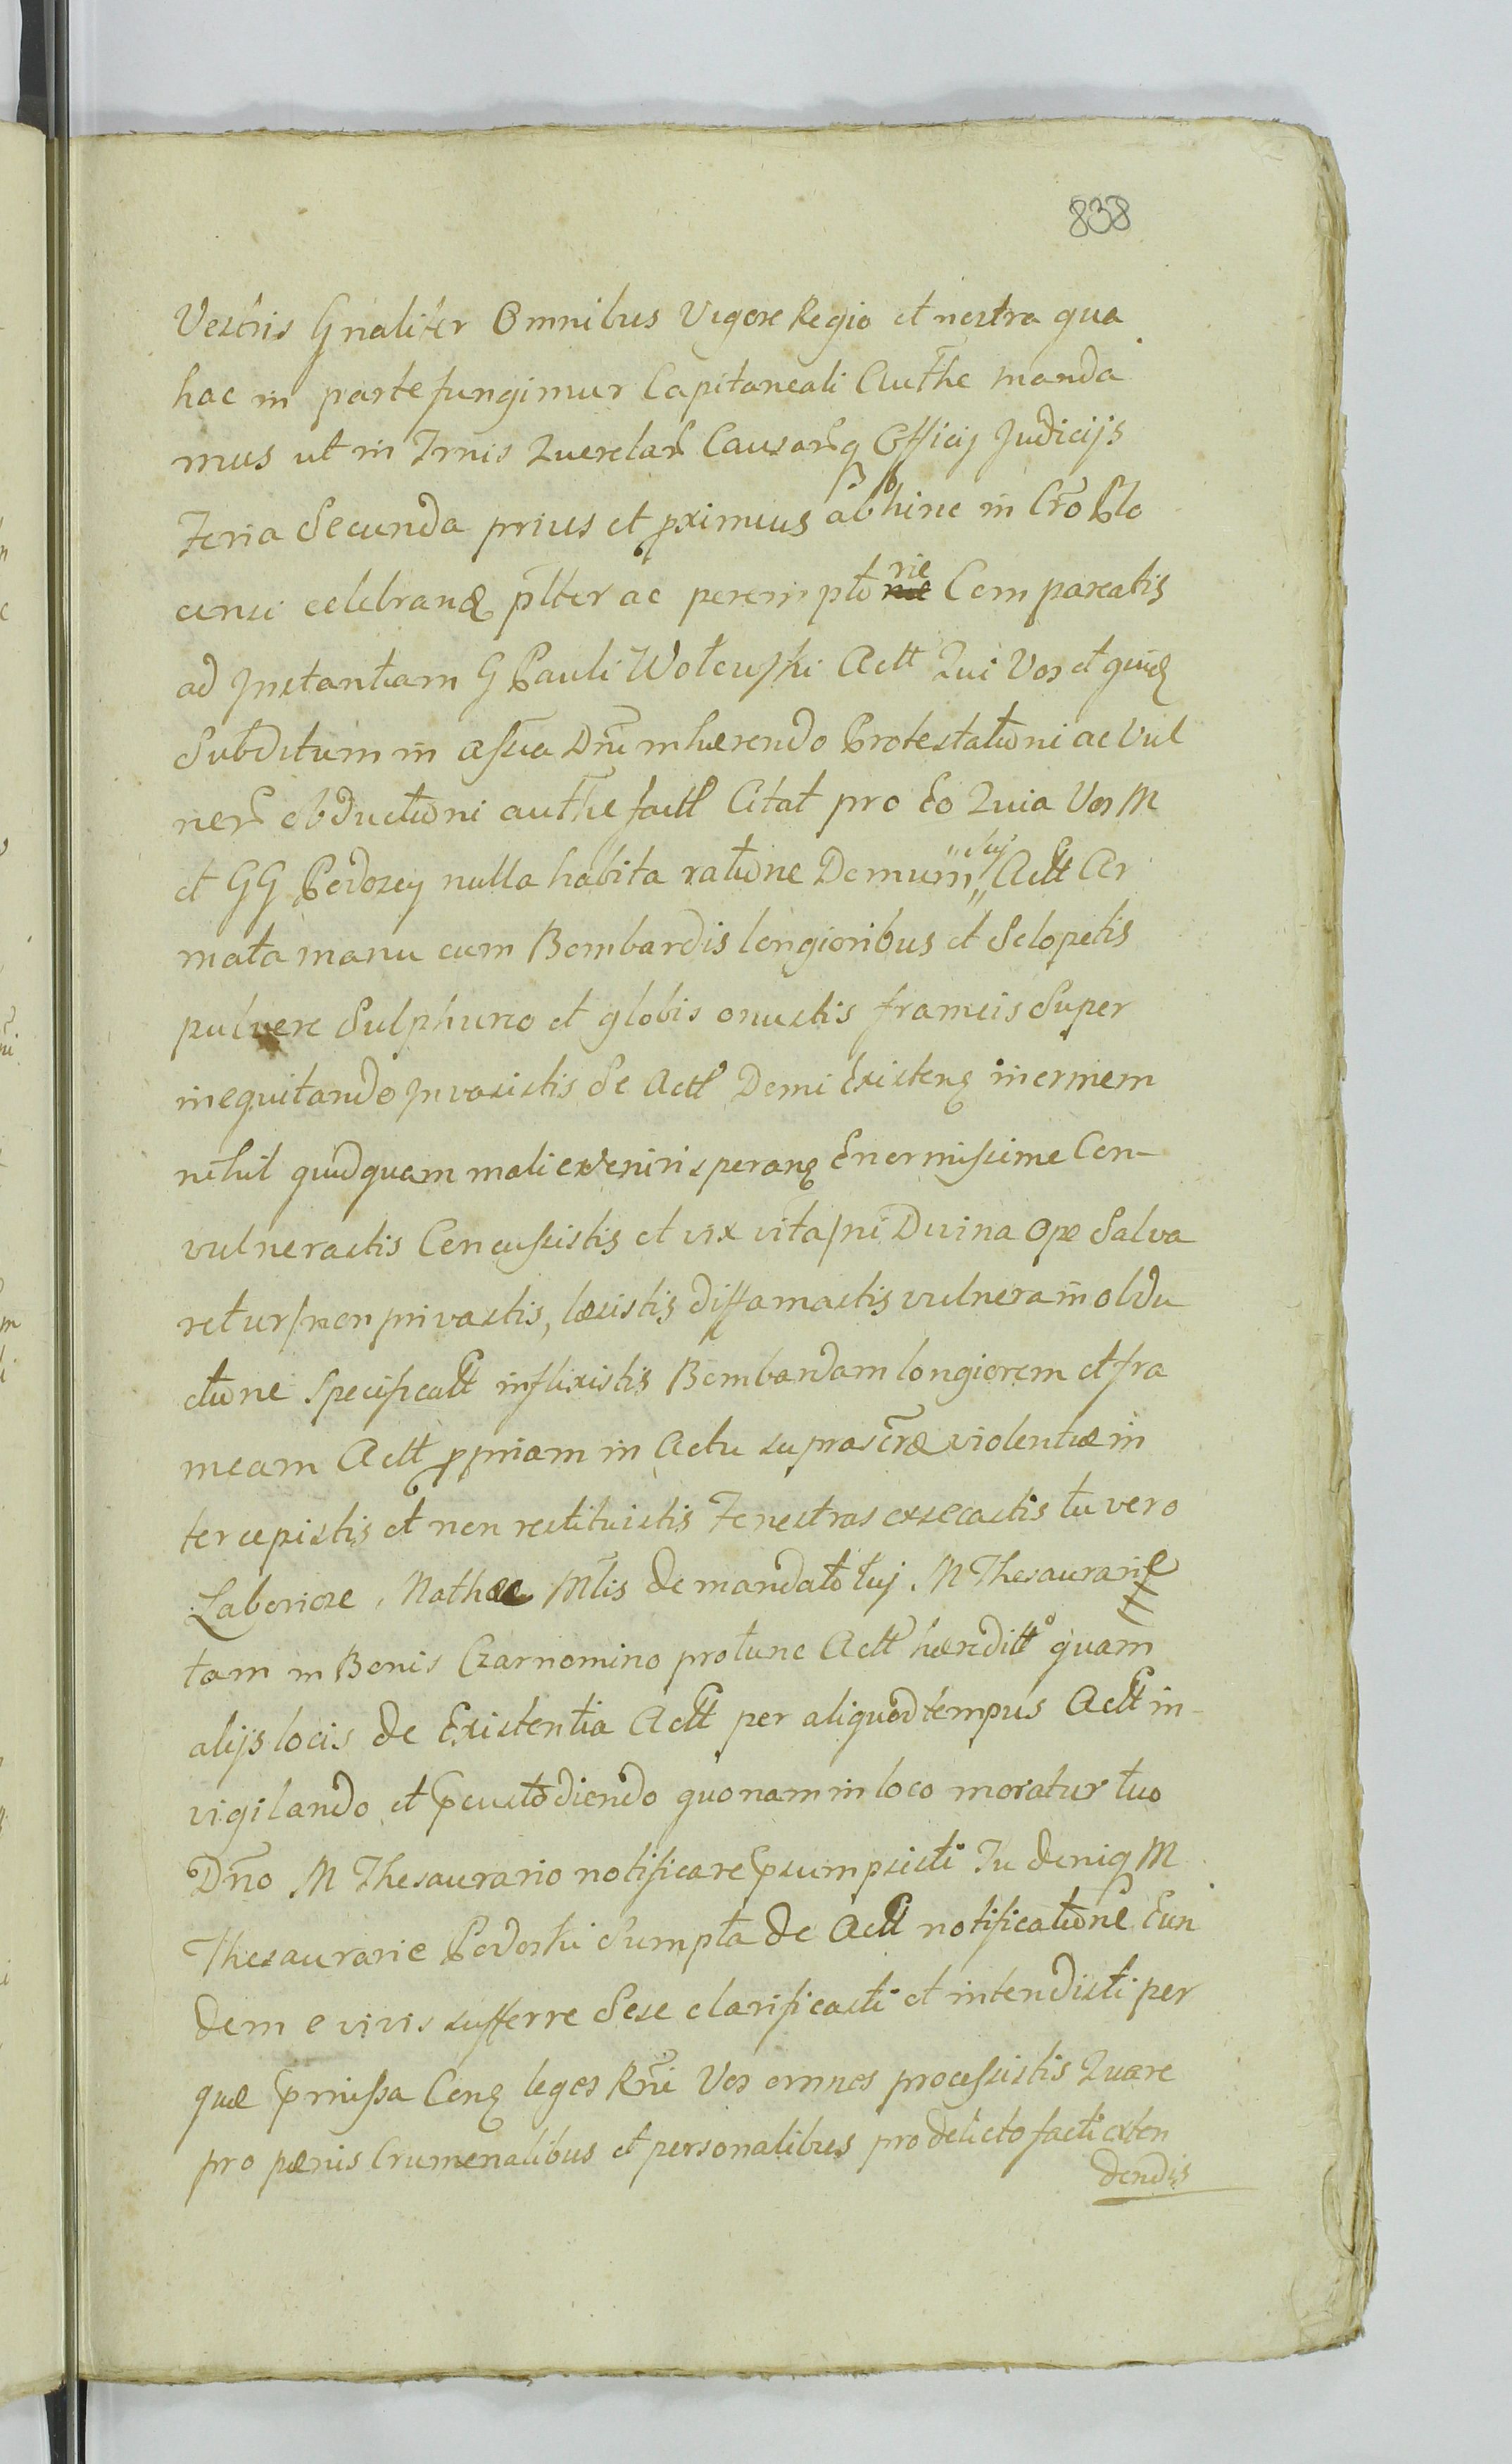 838
Vestris Gnaliter Omnibus Vigore Regio et nostra qua
hac in parte fungimur Capitaneali Authe manda
mus ut in Trnis Querelar Causarq Officij Judicijs
Feria Secunda prius et pximius abhinc in Cro Plo
censi celebrand plter ac perempto rie Compareatis
ad Instantiam G Pauli Wolcuski Actt Qui Vos et quid
Subditum in assia Dni inhærendo Protestationi ac Vul
ner obductioni authe factt Citat pro Eo Quia Vos M
et GG Podoscy nulla habita ratione Domum Actt Ar
mata manu cum Bombardis longioribus et Sclopetis
pulvere Sulphureo et globis onustis frameis Super
inequitando Invasistis Se Actt Domi Existen inermem
nihil quidquam mali eveniri speran Enormissime Con-
vulnerastis Concussistis et vix vita /ni Divina Ope Salva
retur/ non privastis, læsistis diffamastis vulnera in obdu
ctione Specificatt inflixistis Bombardam longiorem et fra
meam Actt ppriam in Actu suprascræ violentiæ in
tercepistis et non restituistis Fenestras exsecastis tu vero
Laboriose Mathæe Mtis de mandato tuj M Thesaurarie
tam in Bonis Czarnomino protunc Actt hæreditt quam
alijs locis de Existentia Actt per aliquod tempus Actt in-
vigilando et pcustodiendo quonam in loco moratur tuo
Dno M Thesaurario notificare psumpsisti Tu deniq M
Thesaurarie Podoski Sumpta de Actt notificatione Eun
dem e vivis sufferre Sese clarificasti et intendisti per
quæ pmissa Con leges Rni Vos omnes processistis Quare
pro pænis Crumenalibus et personalibus pro delicto facti exten
dendis